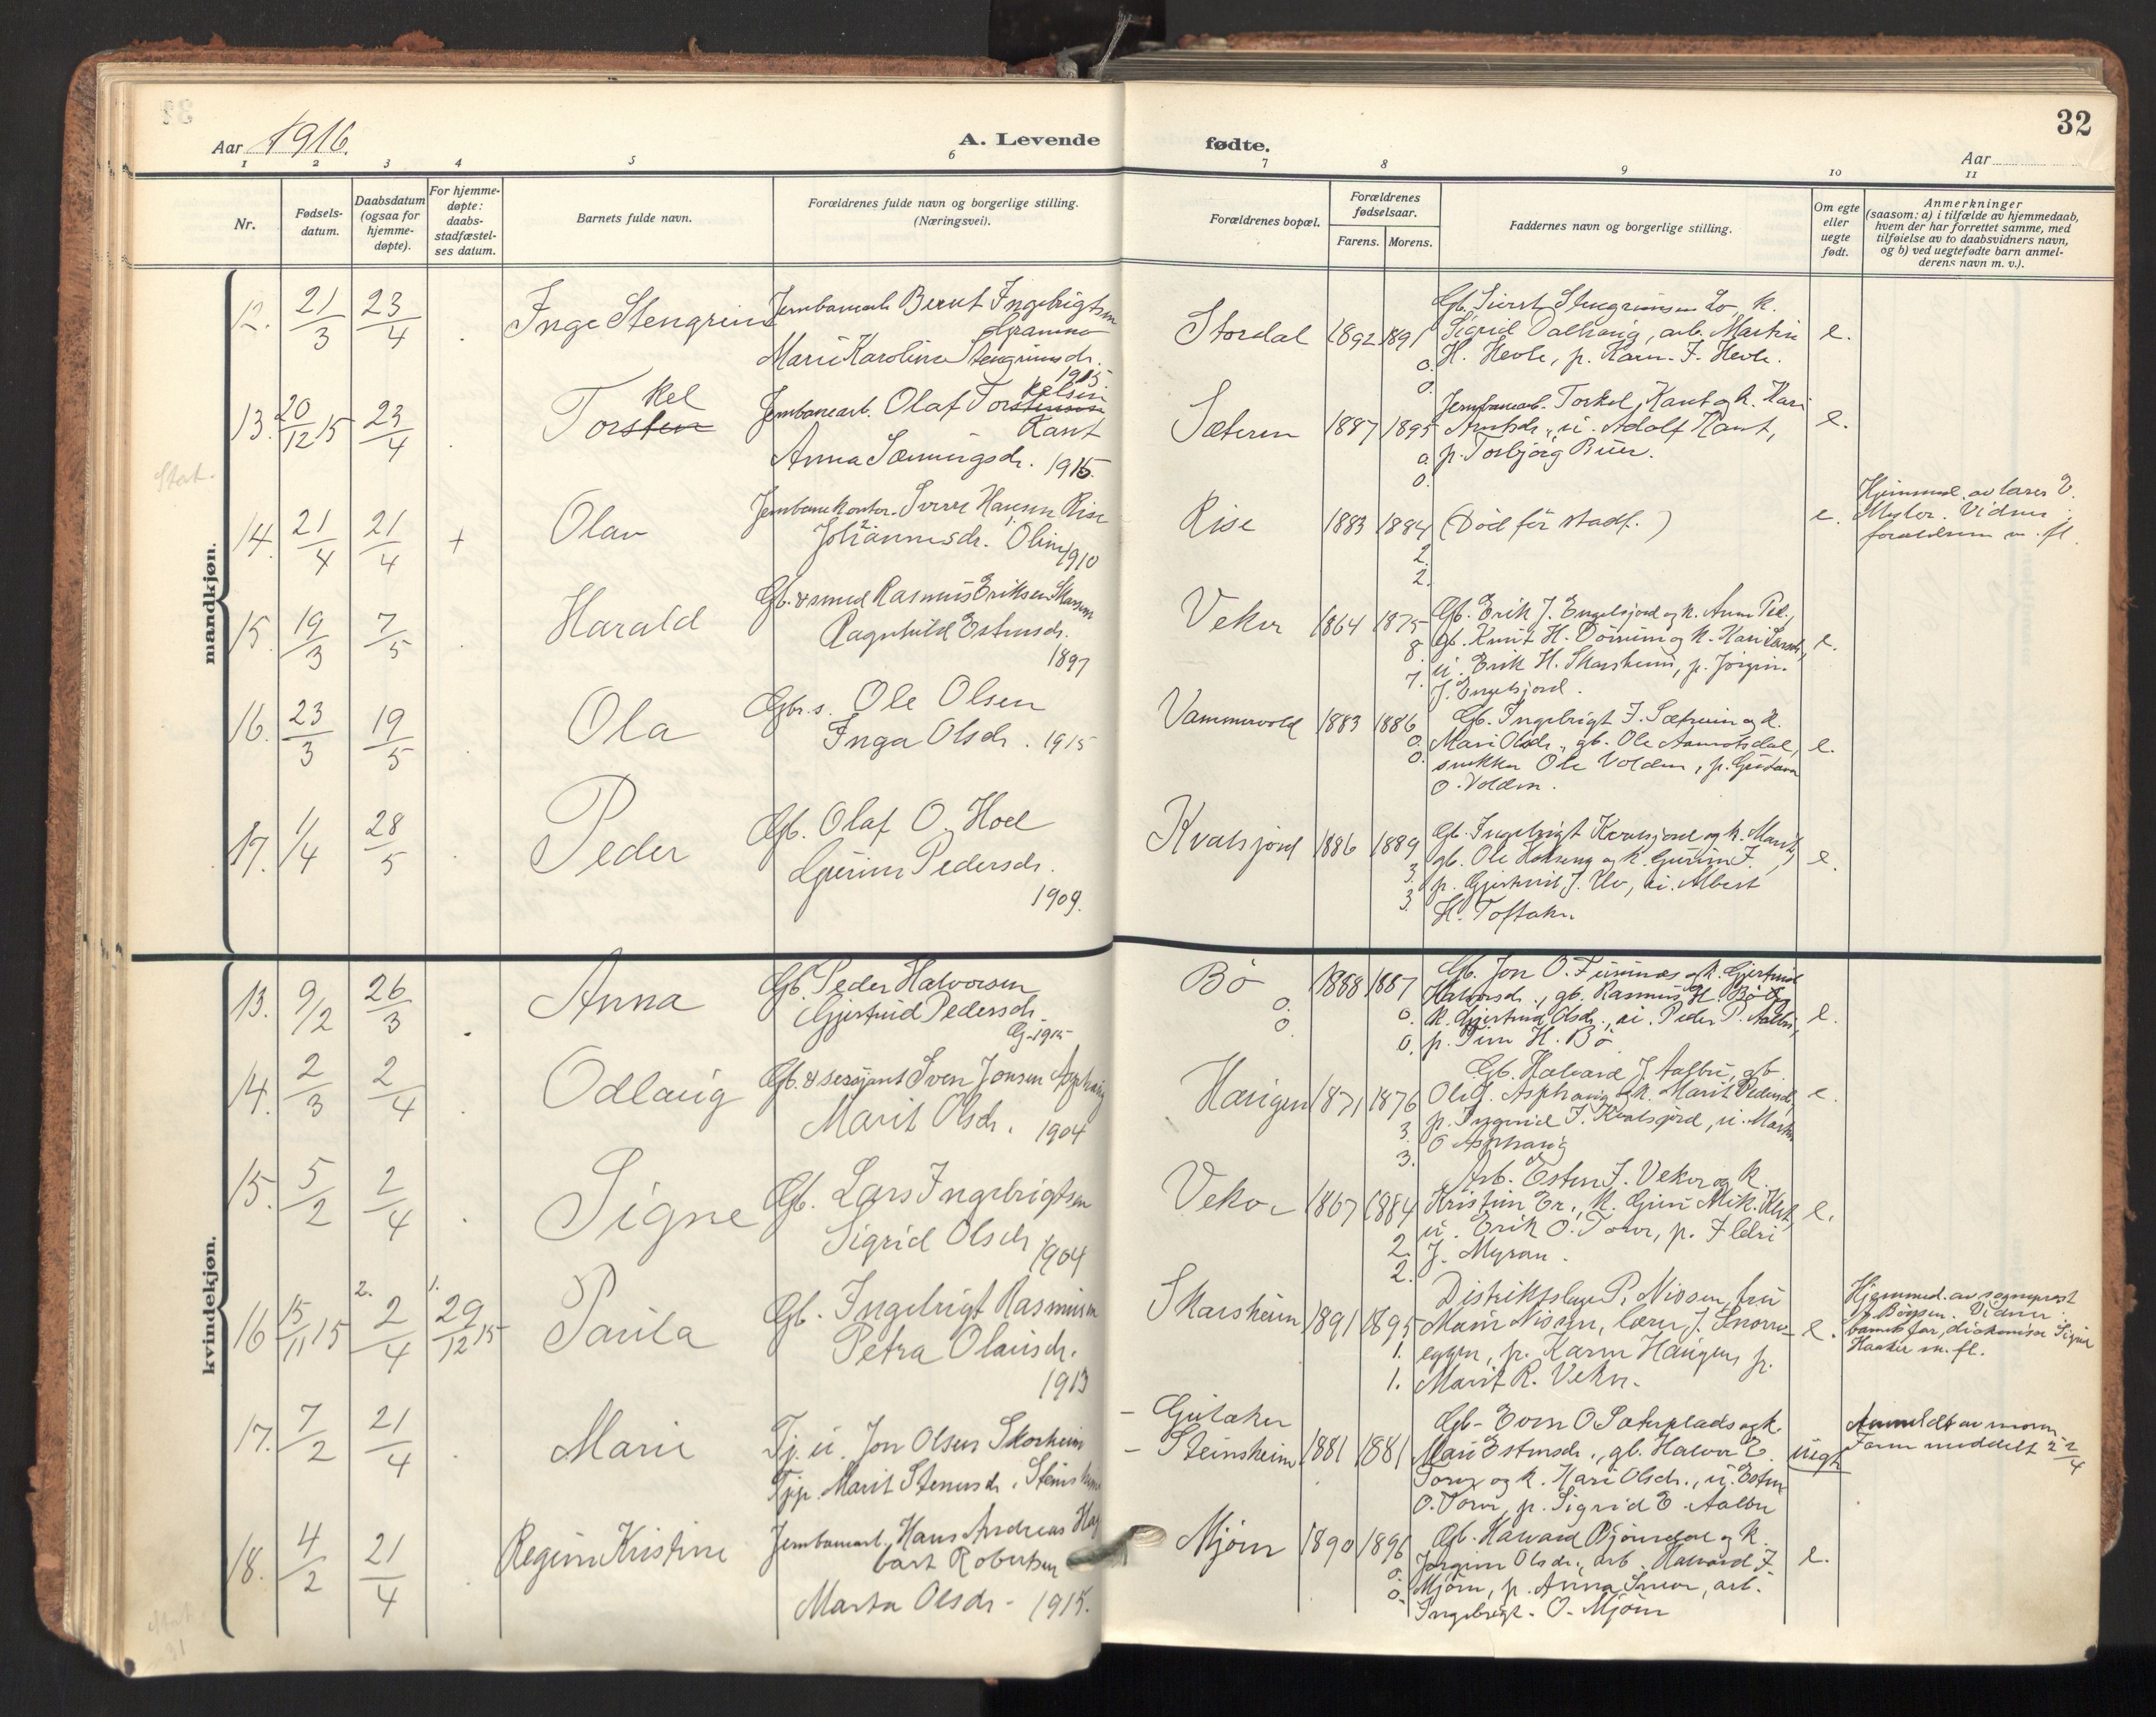 32
Aar 1916.
A. Levende fødte.
Aar
1 2 3 4 5 6 7 8 9 10 11
Nr.
Fødsels-
datum.
Daabsdatum
(ogsaa for
hjemme-
døpte).
For hjemme-
døpte:
daabs-
stadfæstel-
ses datum.
Barnets fulde navn.
Forældrenes fulde navn og borgerlige stilling.
(Næringsvei).
Forældrenes bopæl.
Forældrenes
fødselsaar.
Farens. Morens.
Faddernes navn og borgerlige stilling.
Om egte
eller
uegte
født.
Anmerkninger
(saasom: a) i tilfælde av hjemmedaab,
hvem der har forrettet samme, med
tilføielse av to daabsvidners navn,
og b) ved uegtefødte barn anmel-
derens navn m. v.).
mandkjøn.
12. 21/3 23/4 Inge Stengrim
Bernt Ingebrigtsen
Marie Karoline Stengrimsdr.
1915.
Stordal 1892 1891 e.
0.
0.
Sigrid Dalhaug, arb. Martin
H. Hevle, p. Karen J. Hevle.
13. 20/12 15 23/4 Torsten kel
Jernbanearb. Olaf Torstensen kelsen
Kant
Anna Sæmingsdr. 1915.
Sæteren 1887 1895 e.
0.
0.
Jernbanearb. Torkel Kant og k. Kari
u. Adolf Kant,
p. Torbjörg Buer.
Stat.
14. 21/4 21/4 + Olav
Sverre Hansen Rise
Johannesdr. Oline
1910
Rise 1883 1884 (Död för stadf.) e.
2.
2.
Hjemmed. av lærer E.
Mesloe. Vidner:
forældrene m. fl.
15. 19/3 7/5 Harald
Gb. & smed Rasmus Eriksen
Ragnhild Estensdr.
1897
Vekve 1864 1875 e.
8.
7.
Gb. Erik J. Engelsjord og k. Anne Ped.,
gb. Knut H. og k. Kari Larsdr.,
u. Erik H. Skarsheim, p. Jörgine
J. Engelsjord.
16. 23/3 19/5 Ola
Gbr.s. Ole Olsen
Inga Olsdr. 1915
Vammervold 1883 1886 e.
0.
0.
Gb. Ingebrigt J. og k.
Mari Olsdr., gb. Ole
snekker Ole Volden, p. Gustava
O. Volden.
17. 1/4 28/5 Peder
Gb. Olaf O. Hoel
Guruni Pedersdr.
1909.
Kvalsjord 1886 1889 e.
3.
3.
Gb. Ingebrigt Kvalsjord og k. Marit,
gb. Ole og k. J.,
p. Gjertrud J. u. Albert
H. Toftaker.
kvindekjøn.
13. 9/2 26/3 Anna
Gb. Peder Halvorsen
Gjertrud Pedersdr.
G. 1915
Bö 1888 1887 e.
0. 0.
0. 0.
Gb. Jon O. og k. Gjertrud
Halvorsdr., gb. Rasmus H. Bö og
k. Gjertrud Olsdr., u. Peder P. Aalbu,
p. H. Bö
14. 2/3 2/4 Odlaug
Gb. & sersjant Sven Jonsen Asphaug
Marit Olsdr. 1904
Haugen 1871 1876 e.
3.
3.
Gb. Halvard J. Aalbu, gb.
Ole J. Asphaug og k. Marit Pedersdr.,
p. Ingrid J. Kvalsjord, u. Martin
O Asphaug
15. 5/2 2/4 Signe
Gb. Lars Ingebrigtsen
Sigrid Olsdr. 1904
Vekve 1867 1884 e.
2.
2.
Arb. Esten J. Vekve og k.
Kristine Er., k. Guri Mik.
u. Erik O. Torve, p. Ildri
J. Myran.
16 15/11 15 2. 2/4 1. 29/12 15 Paula
Gb. Ingebrigt Rasmussen
Petra Olausdr.
1913
Skarsheim 1891 1895 e.
1.
1.
Distriktslæge P. Nissen, fru
Nissen, lærer J. Snorre-
eggen, p. Karen Haugen, p.
Marit R. Vekve.
Hjemmed. av sogneprest
Vidner:
barnets far, diakonisse Signe
Haaker m. fl.
17. 7/2 21/4 Marie
Tj. u. Jon Olsen Skorheim
Tjp. Marit Stensdr. Steinsheim
- Gulaker
- Steinsheim 1881 1881 uegte
Gb. Even O. Sæterplads og k.
Mari Estensdr., gb. Halvor E.
Torve og k. Kari Olsdr., u. Esten
O. Torve, p. Sigrid E. Aalbu
Anmeldt av moren.
Faren meddelt 22/4
18. 4/2 21/4 Regine Kristine
Jernbanearb. Hans Andreas Hag-
bart Robertsen
Marta Olsdr. 1915.
Mjöen 1890 1896 e.
0.
0.
Gb. Halvard og k.
Jörgine Olsdr., arb. Halvard J.
Mjöen, p. Anna arb.
Ingebrigt O. Mjöen